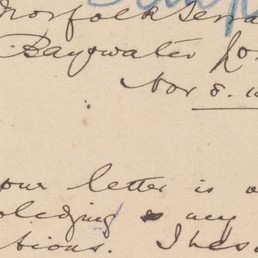 Norfolk Terra
Bayswater Lo
Nov 8.
our letter is
oledging any
tions. These